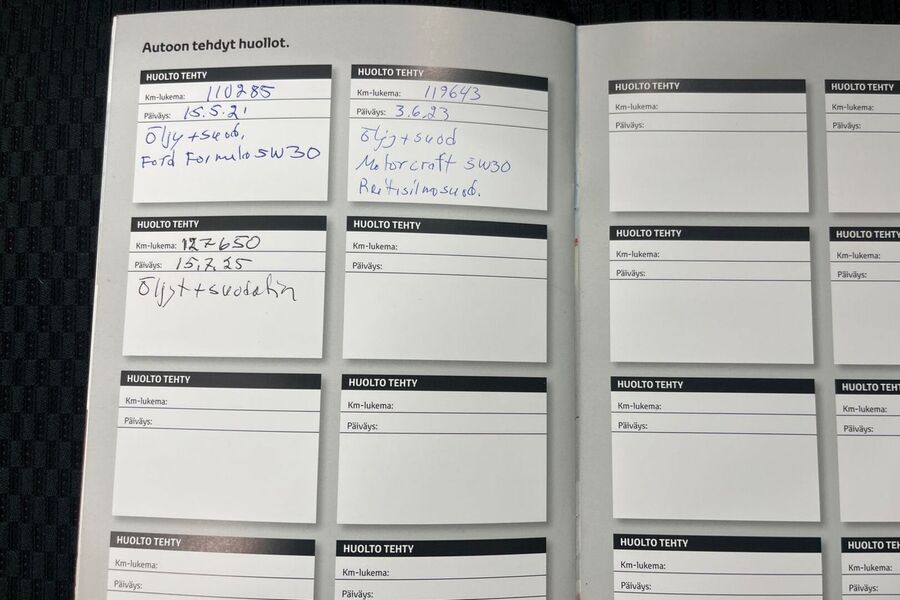 Autoon tehdyt huollot.
HUOLTO TEHTY
Km-lukema: 110285
Päiväys: 15.5.21
Öljy + suod.
Ford Formula 5W30
HUOLTO TEHTY
Km-lukema: 119643
Päiväys: 3.6.23
Öljy + suod
Motorcraft 5W30
Reitisilmasuod.
HUOLTO TEHTY
Km-lukema:
Päiväys:
HUOLTO TEHTY
Km-lukema:
Päiväys:
HUOLTO TEHTY
Km-lukema: 127650
Päiväys: 15.7.25
Öljyt + suodatin
HUOLTO TEHTY
Km-lukema:
Päiväys:
HUOLTO TEHTY
Km-lukema:
Päiväys:
HUOLTO TEHTY
Km-lukema:
Päiväys:
HUOLTO TEHTY
Km-lukema:
Päiväys:
HUOLTO TEHTY
Km-lukema:
Päiväys:
HUOLTO TEHTY
Km-lukema:
Päiväys:
HUOLTO TEHTY
Km-lukema:
Päiväys:
HUOLTO TEHTY
Km-lukema:
Päiväys:
HUOLTO TEHTY
Km-lukema:
Päiväys:
HUOLTO TEHTY
Km-lukema:
Päiväys:
HUOLTO TEHTY
Km-lukema:
Päiväys: